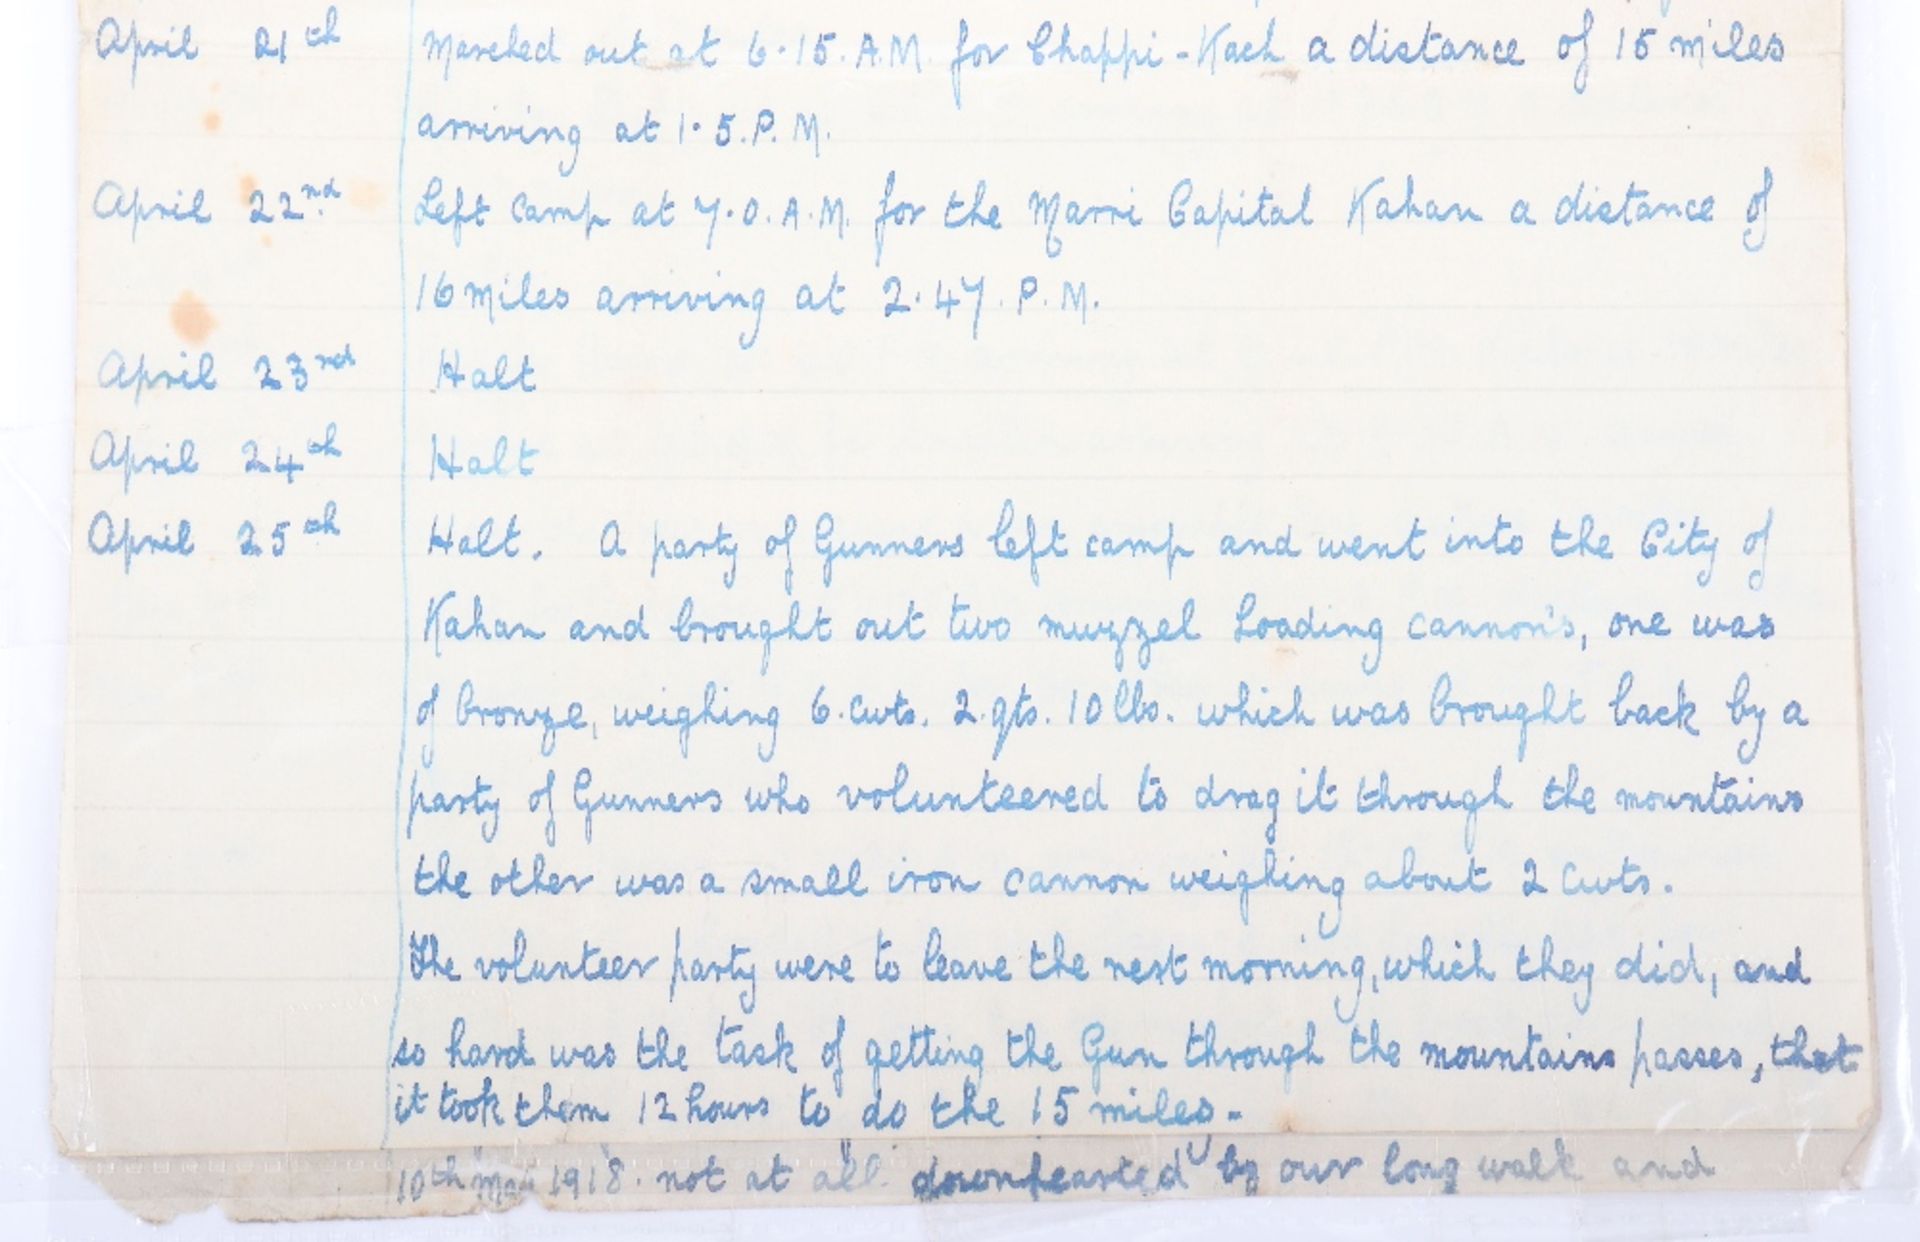 April 21th Marched out at 6.15.A.M. for Chappi-Kach a distance of 15 miles
arriving at 1.5.P.M.
April 22nd Left camp at 7.0.A.M. for the Marri Capital Kahan a distance of
16 miles arriving at 2.47.P.M.
April 23rd Halt
April 24th Halt
April 25th Halt. A party of Gunners left camp and went into the City of
Kahan and brought out two muzzel Loading cannon's, one was
of bronze, weighing 6.cwts. 2.qts. 10lbs. which was brought back by a
party of Gunners who volunteered to drag it through the mountains
the other was a small iron cannon weighing about 2 cwts.
The volunteer party were to leave the next morning, which they did, and
so hard was the task of getting the Gun through the mountains passes, that
it took them 12 hours to do the 15 miles-
10th May 1918. not at all downhearted by our long walk and